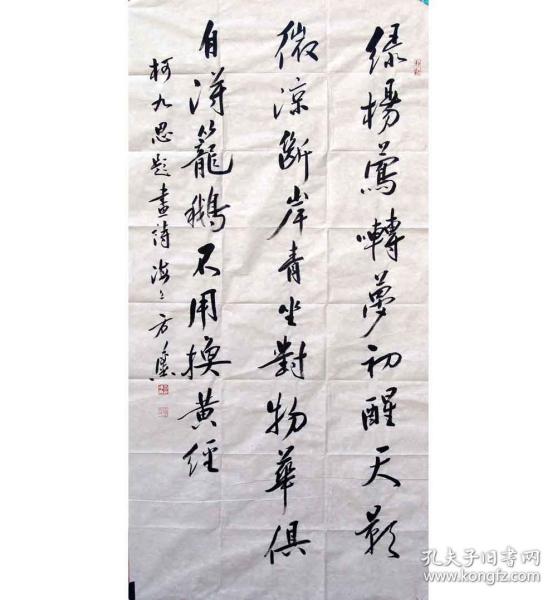 绿楊鶯囀夢初醒天影
微涼斷岸青坐對物華俱
自得籠鵝不用換黄經
柯九思題畫詩 海上方
孔夫子旧书网
www.kongfz.com